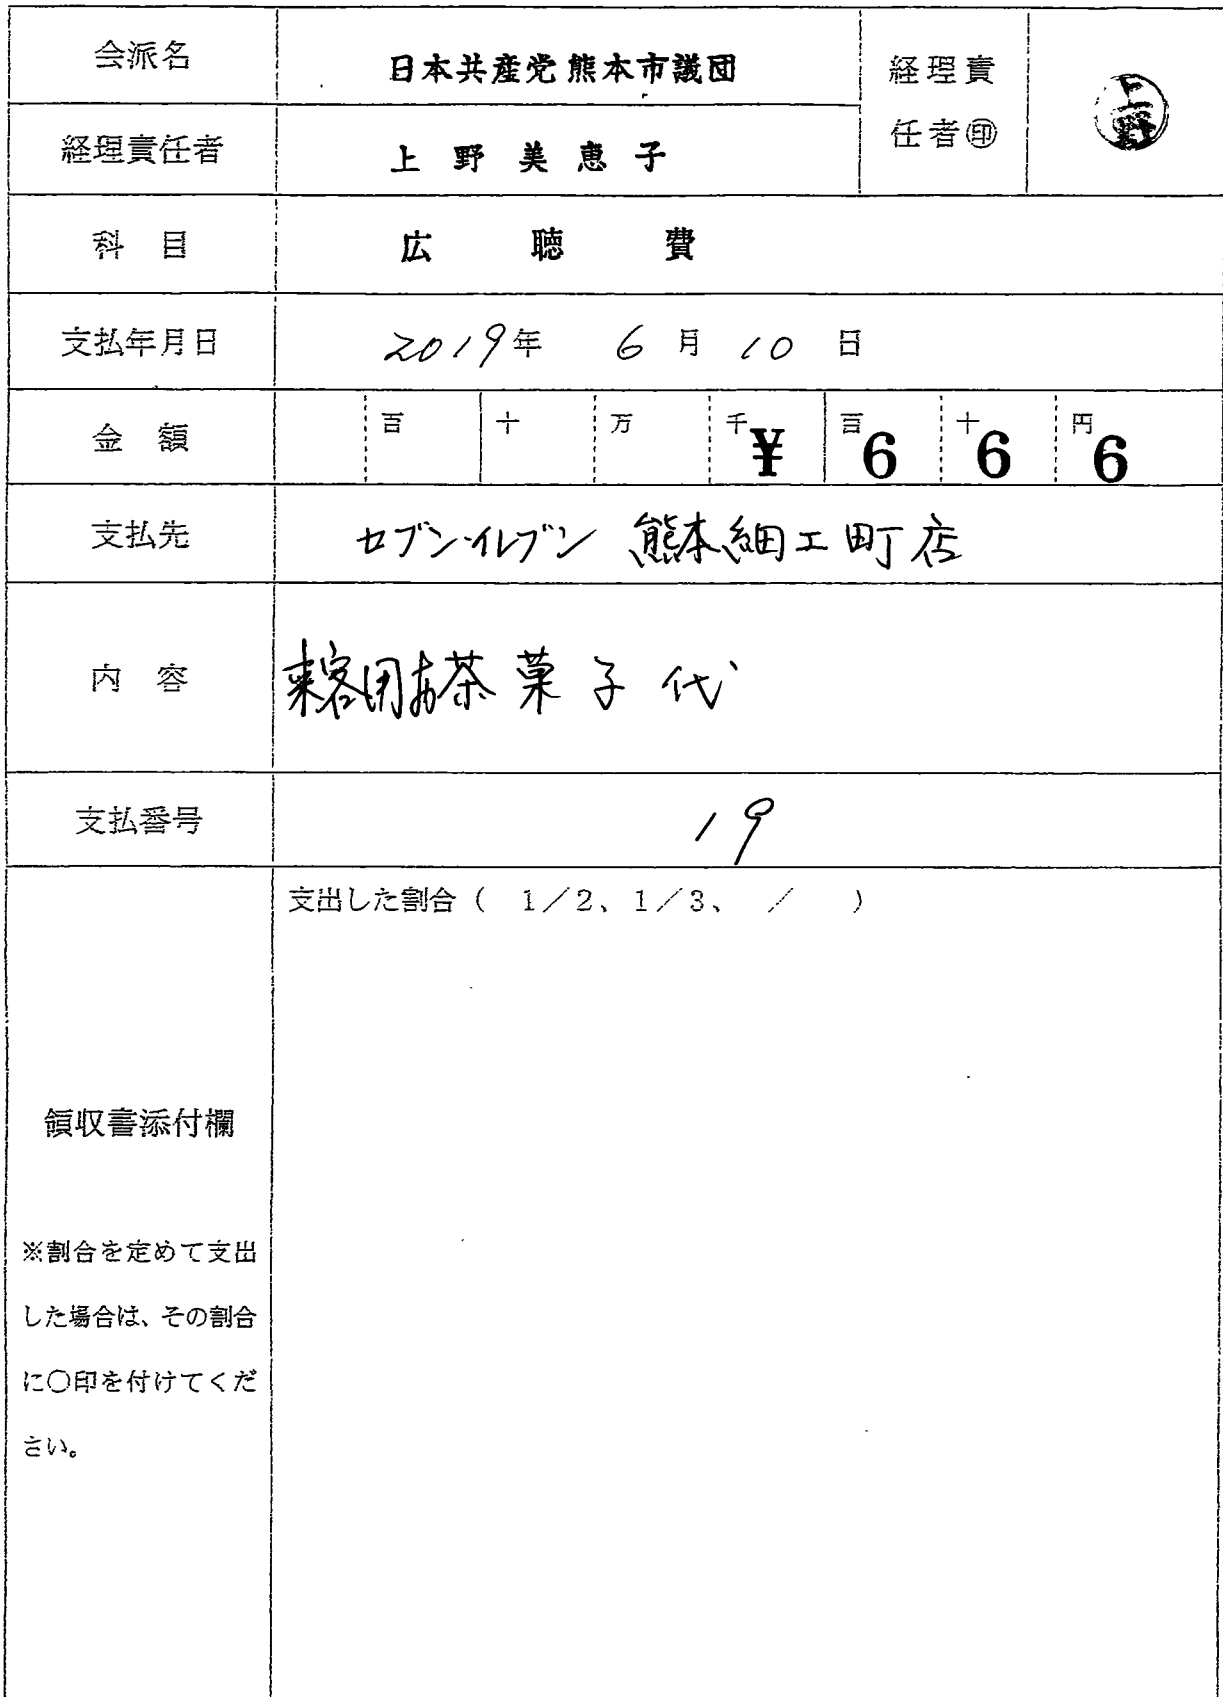 会派名 日本共産党熊本市議団 経理責
任者㊞ 上野
経理責任者 上野美恵子
科目 広聴費
支払年月日 2019年 6月 10日
金額 百 十 万 千¥ 百6 十6 円6
支払先 セブン-イレブン 熊本細工町店
内容 来客用お茶菓子代
支払番号 19
支出した割合( 1/2、1/3、 / )
領収書添付欄
※割合を定めて支出
した場合は、その割合
に○印を付けてくだ
さい。